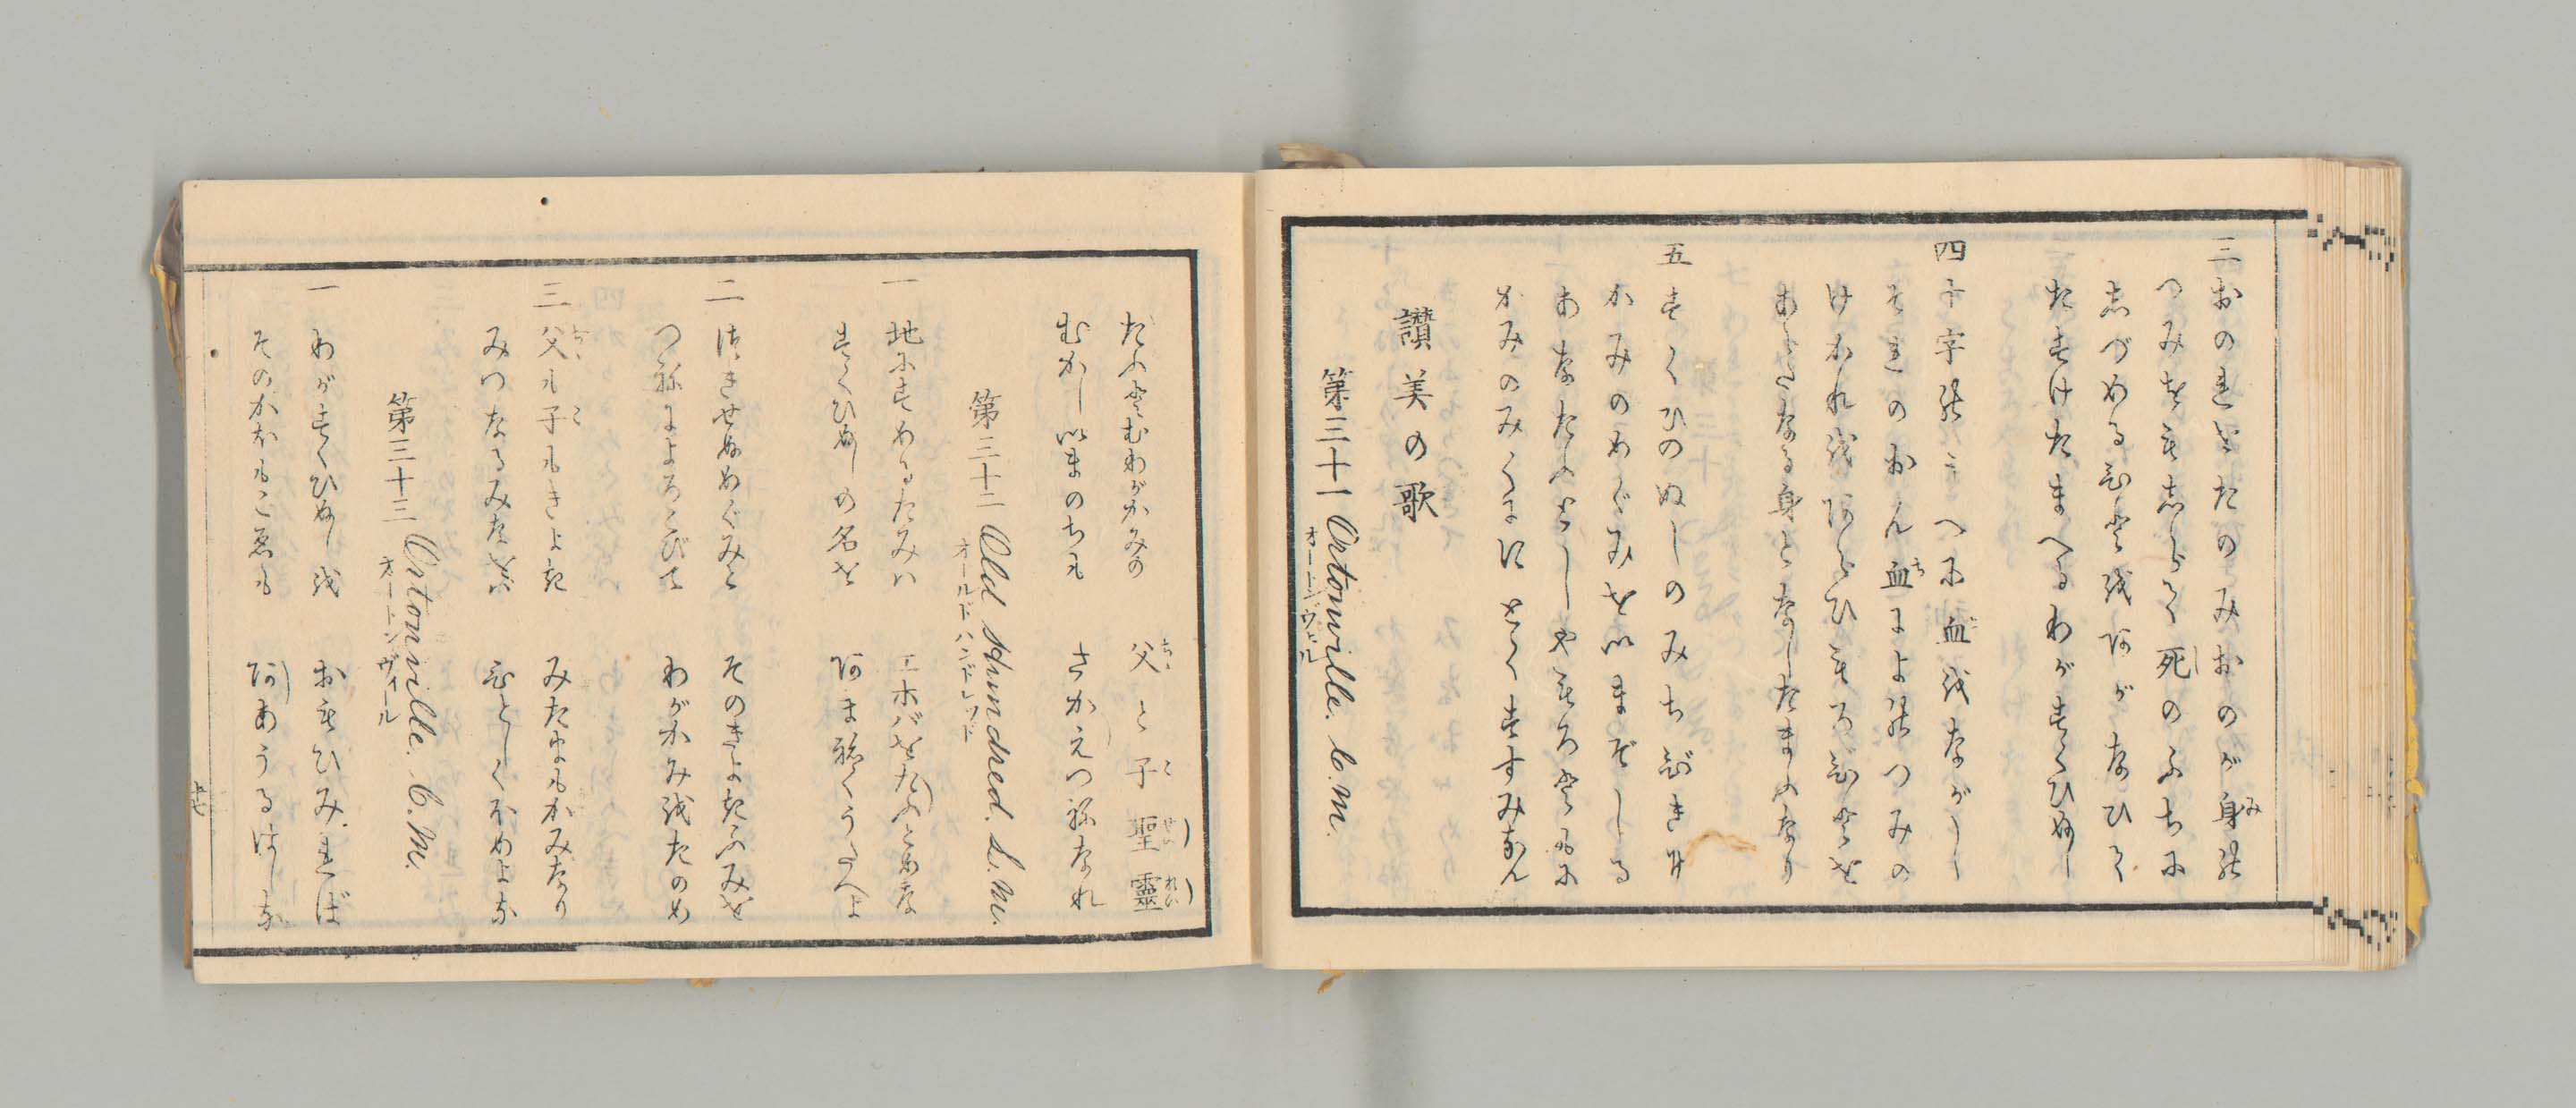 三 おのれをたのみおのが身の
つみをもしらで死のふちに
しづめるひとをあがなひて
たすけたまへるわがすくひぬし
四 十字のうへに血をながし
それのおん血によのつみの
けがれをあらひもろびとを
あらたなる身となしたまふなり
五 すくひのぬしのみちびきに
かみのめぐみをいまぞしる
あなたふとしやもろともに
かみのみくににとくすすみなん
讃美の歌
第三十一 Ortonville. C.M.
オートンヴィル
たふとむわがかみの 父と子聖靈
むかしいまのちも さかえつねなれ
第三十二 Old Hundred. L.M.
オールドハンドレッド
一 地にすめるたみハ エホバをたふとめな
すくひぬしの名を あまねくうたへよ
二 つきせぬめぐみと そのきよきふみを
つねによろこびて わがかみをたのめ
三 父も子もきよき みたまもかみなり
みつなるみたまを ひとしくほめよな
第三十三 Ortonville. C.M.
オートンヴィール
一 わがすくひぬしを おもひみれば
そのかほもこゑも ああうるはしな